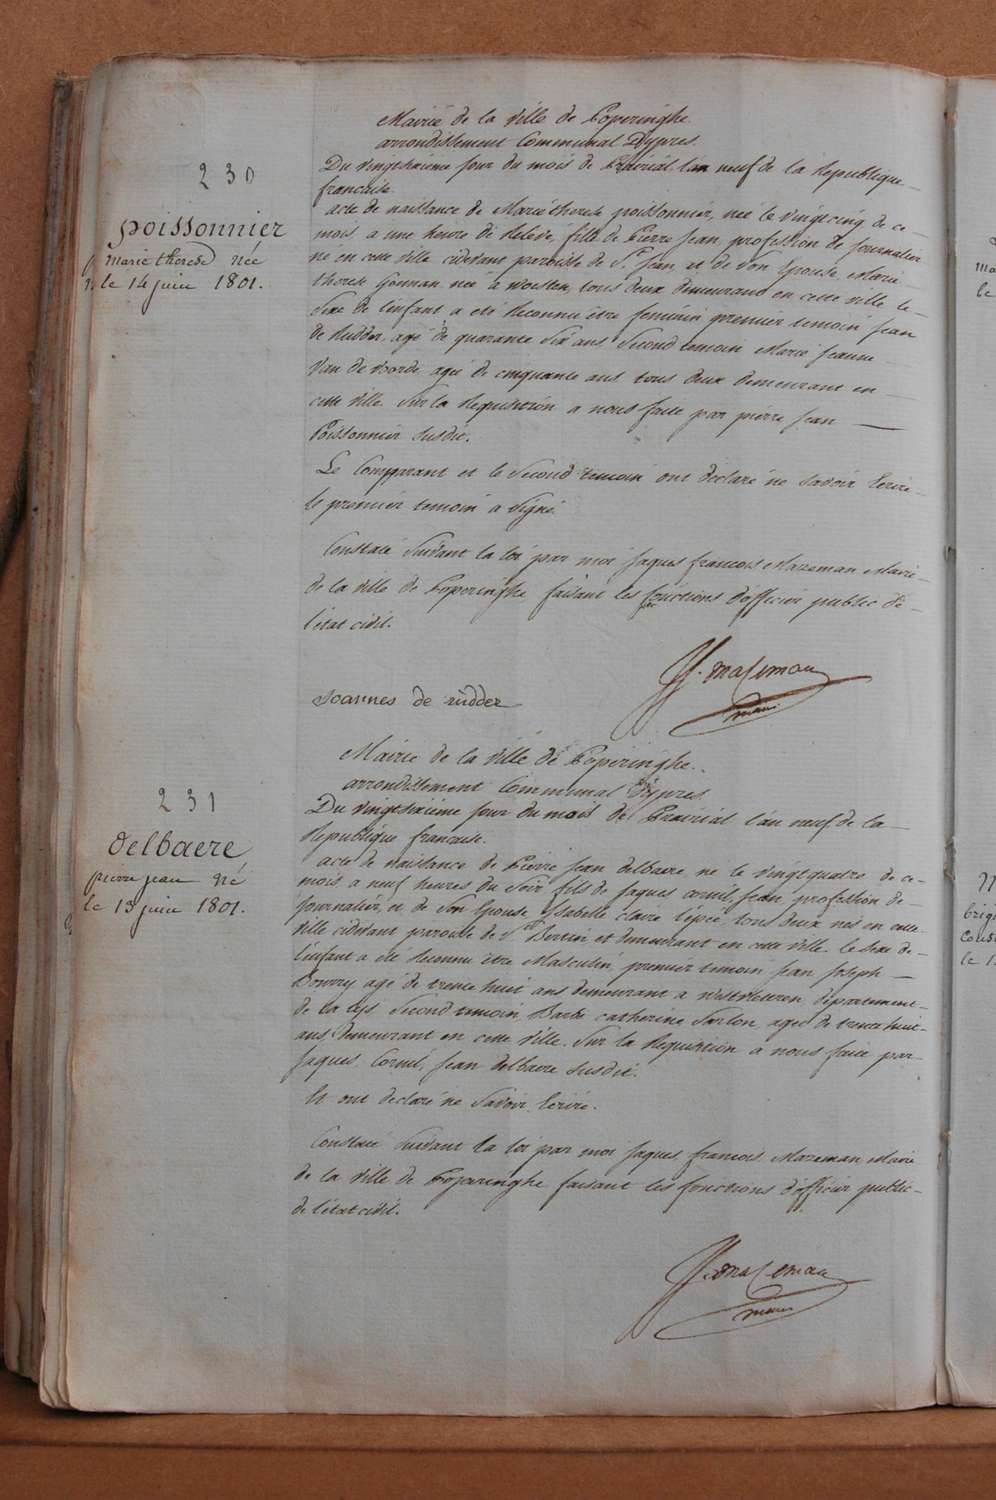 Mairie de la ville de Poperinghe
arrondissement Communal Dypres
230
Du vingtsixieme jour du mois de Prairial l'an neuf de la Republique
francaise.
poissonnier
marie therese née
le 14 juin 1801.
acte de naissance de Marie therese poissonnier, née le vingt cinq de ce
mois a une heure de Relevé, fille de Pierre Jean profession de Journalier
né en cette ville cidevant paroisse de St. Jean et de son Epouse Marie
therese née a woesten, tous deux demeurans en cette ville le
Sexe de l'enfant a été Reconnu être feminin premier temoin Jean
de Rudder, agé de quarante Six ans Second temoin Marie Jeanne
Van de voorde agée de cinquante ans tous deux demeurant en
cette ville. Sur la Requisition a nous faite par pierre Jean
Poissonnier susdit.
Le Comparant et le Second temoin ont déclaré ne savoir Ecrire
le premier temoin a Signé.
Constaté Suivant la loi par moi Jaques francois Mazeman Maire
de la ville de Poperinghe faisant les fonctions d'officier public de
l'état civil.
JJ. Mazeman
maire
Joannes de rudder
Mairie de la ville de Poperinghe.
arrondissement Communal D'ypres
231
Du vingtsixieme jour du mois de Prairial l'an neuf de la
Republique francaise.
delbaere
pierre jean Né
le 13 juin 1801.
acte de naissance de Pierre Jean delbaere né le vingtquatre de ce
mois a neuf heures du Soir, fils de Jaques cornil, Jean profession de
Journalier, et de Son Epouse Isabelle claire Lepée, tous deux nés en cette
ville cidevant paroisse de St. Bertin et demeurant en cette ville le Sexe de
l'enfant a été Reconnu être Masculin, premier temoin Jean Joseph
agé de trente huit ans demeurant a westvleteren departement
de la Lys Second temoin Barbe catherine agée de trente huit
ans demeurant en cette ville. Sur la Requisition a nous faite par
Jaques, Cornil, Jean delbaere Susdit.
Et ont declaré ne Savoir Ecrire.
Constaté Suivant la loi par moi Jaques francois Mazeman Maire
de la ville de Poperinghe faisant les fonctions d'officier public
de l'état civil.
JJ. Mazeman
maire